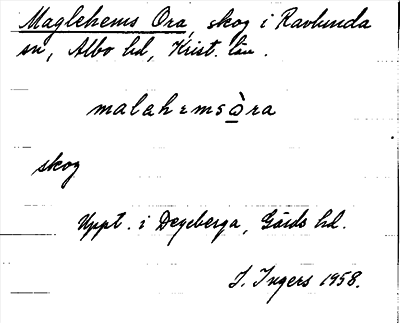 Maglehems Ora, skog i Ravlunda
sn, Albo hd, Krist. län.
malahɛmsòra
skog
Uppt. i Degeberga, Gärds hd.
I. Ingers 1958.